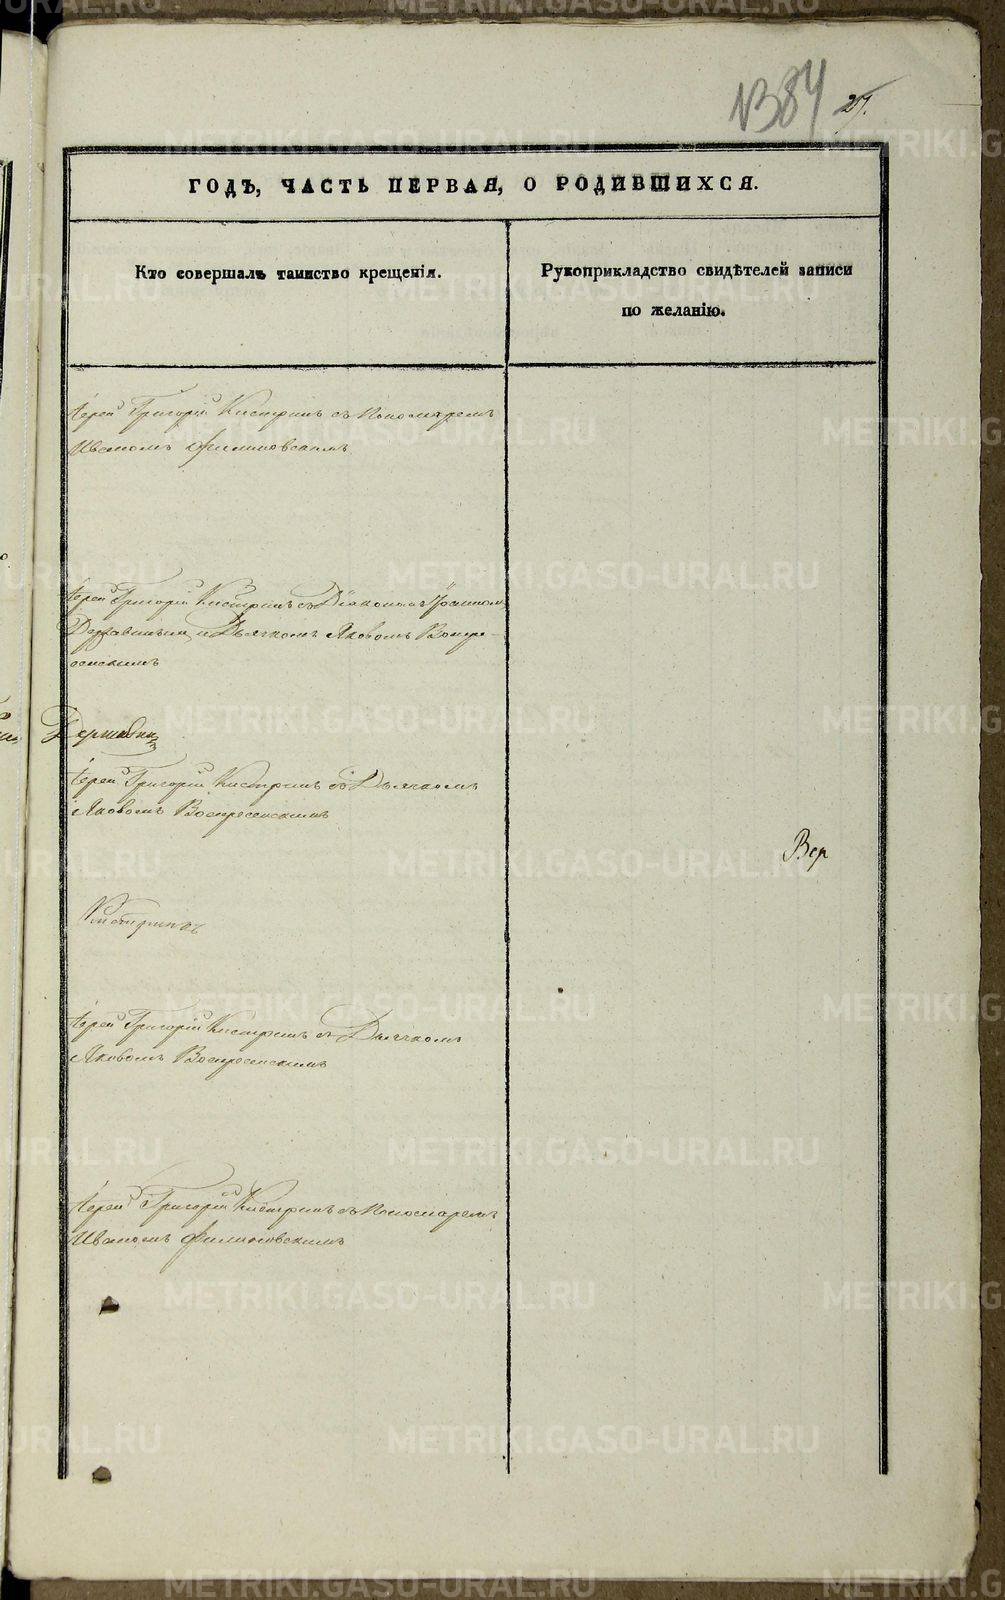 384
27.
ГОДЪ, ЧАСТЬ ПЕРВАЯ, О РОДИВШИХСЯ.
Кто совершалъ таинство крещенія.
Рукоприкладство свидѣтелей записи
по желанію.
Іерей Григорій Кистринъ съ Пономаремъ
Иваномъ Филиповскимъ
Іерей Григорій Кистринъ съ Діякономъ
Державинымъ и Дьячкомъ Яковомъ Воскре-
сенскимъ
Державин
Іерей Григорій Кистринъ съ Дьячкомъ
Яковомъ Воскресенскимъ
Вер
Кистринъ
Іерей Григорій Кистринъ съ Дьячкомъ
Яковомъ Воскресенскимъ
Іерей Григорій Кистринъ съ Пономаремъ
Иваномъ Филиповскимъ
METRIKI.GASO-URAL.RU